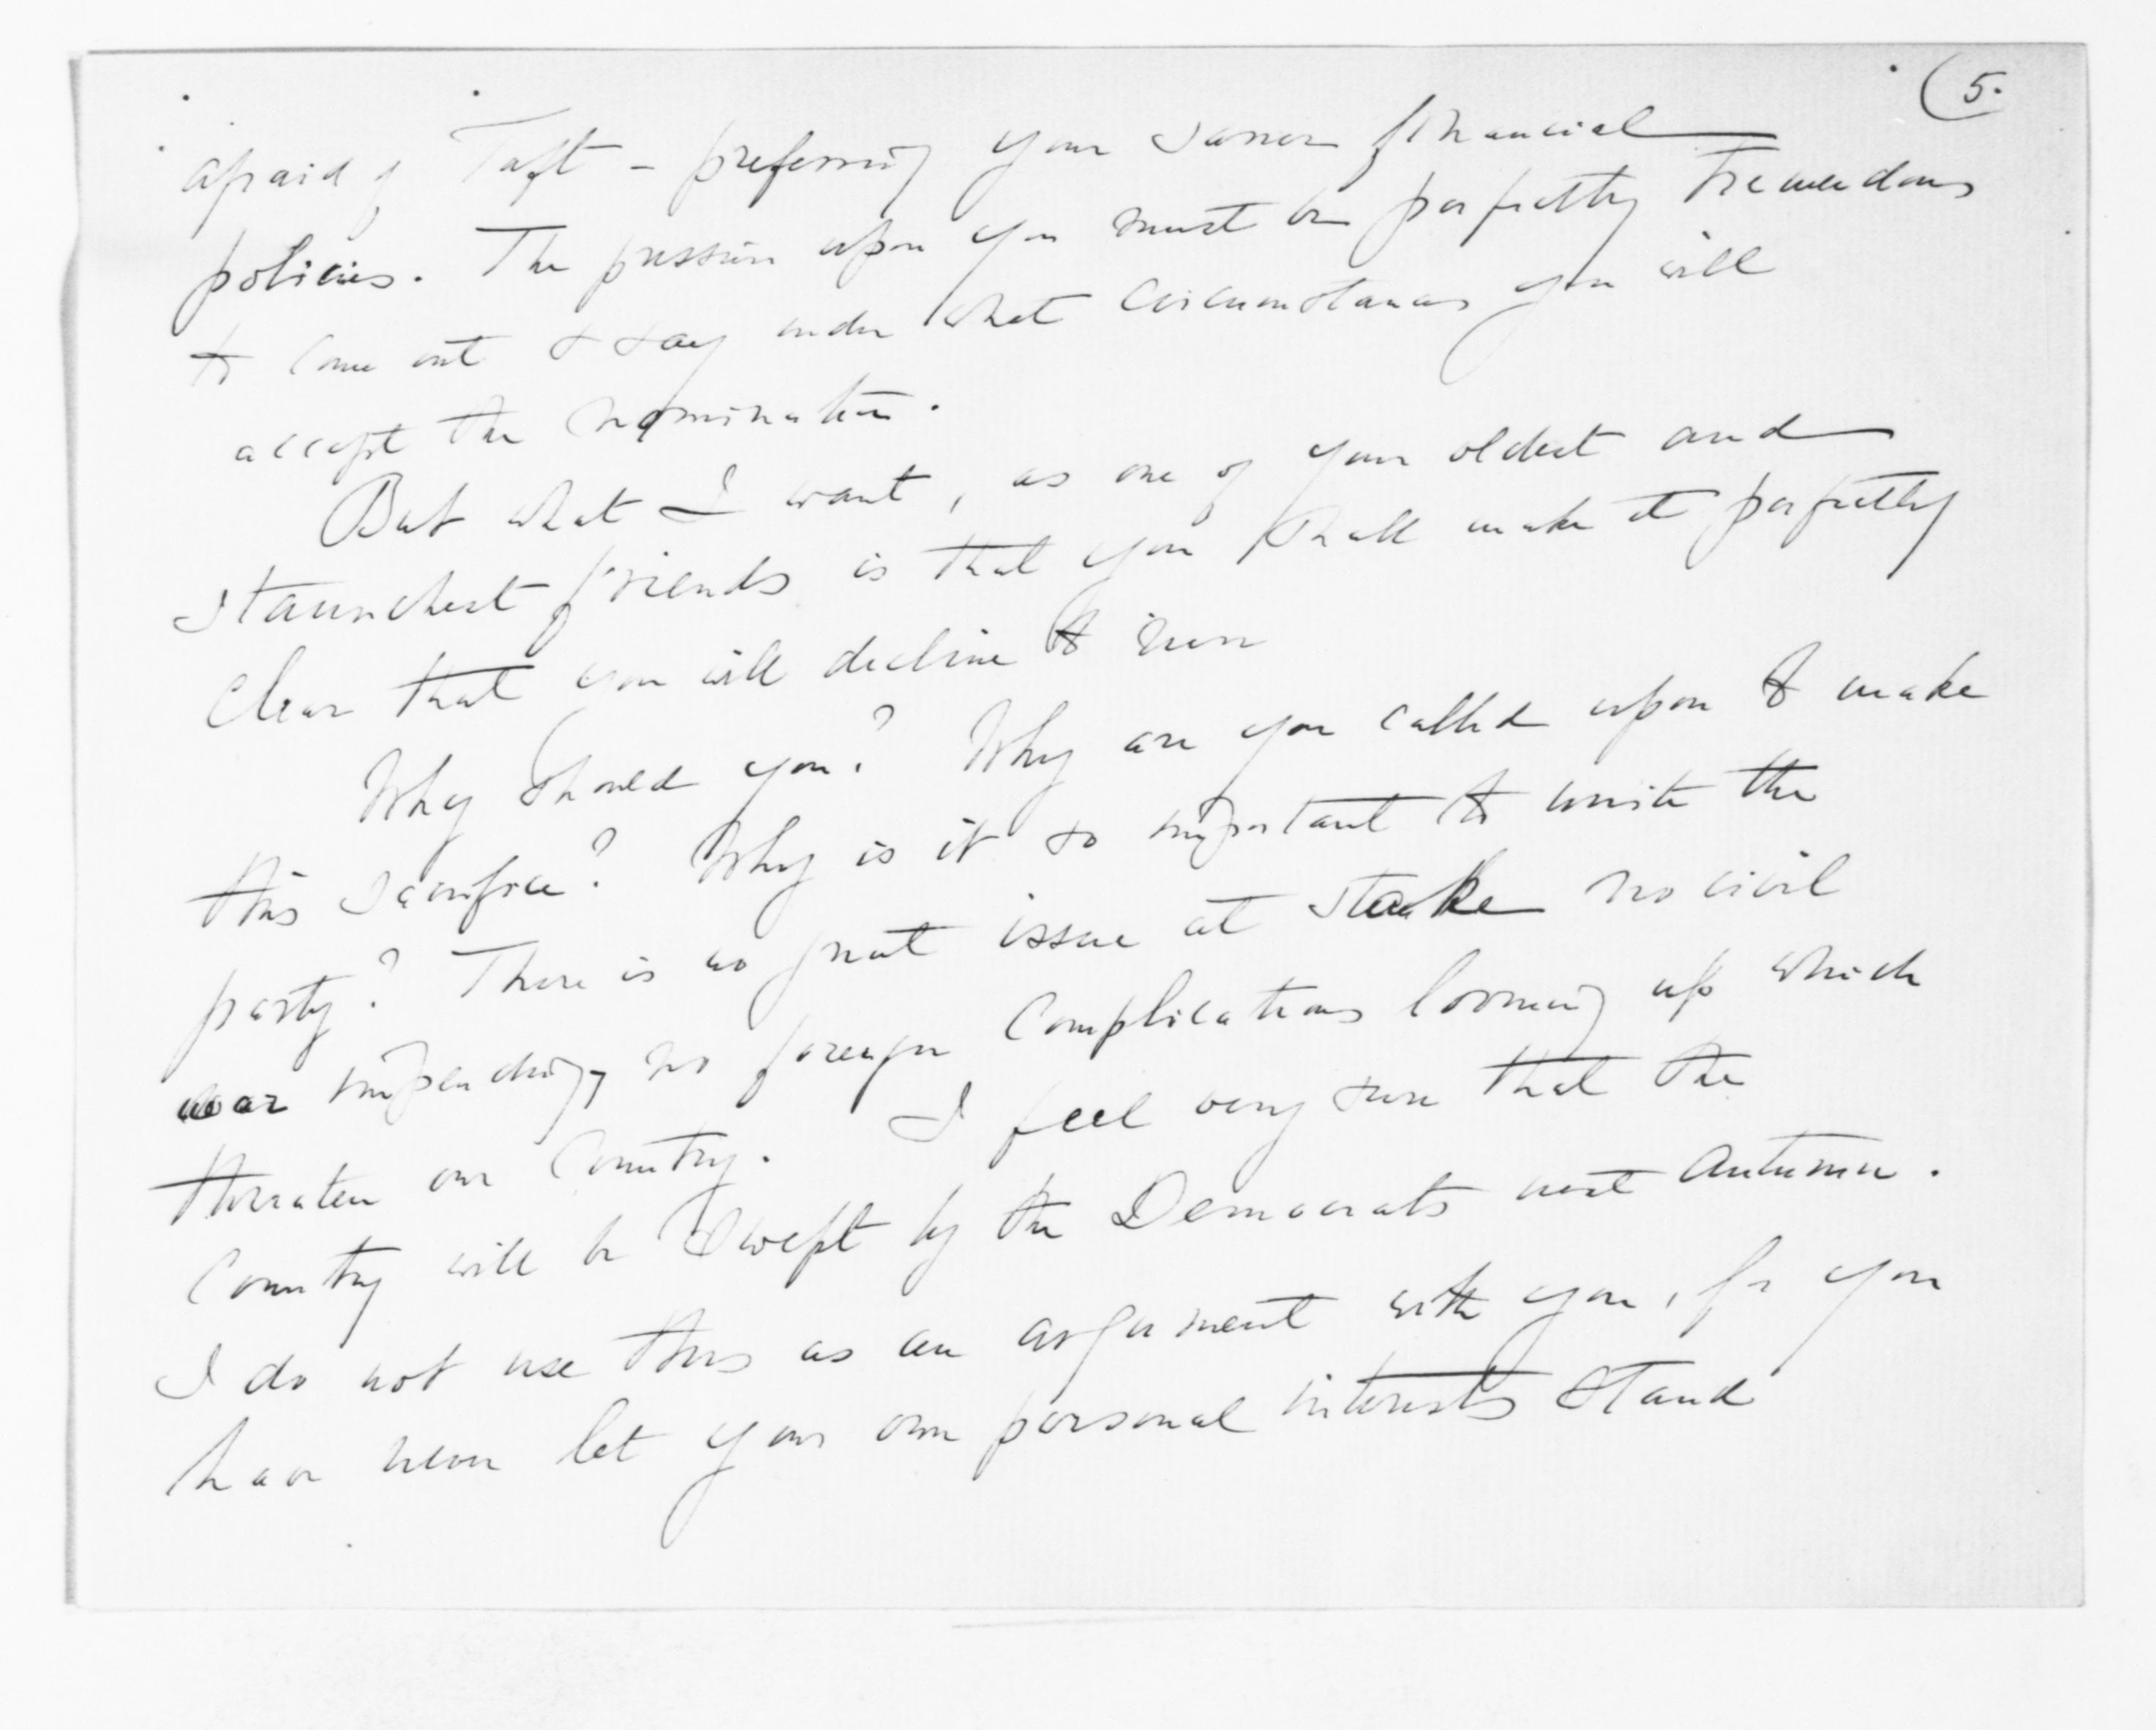 5.
afraid of Taft - preferring your saner financial
policies. The pressure upon you must be perfectly tremendous
to come out & say under what circumstances you will
accept the nomination.
But what I want, as one of your oldest and
staunchest friends is that you shall make it perfectly
clear that you will decline to run
Why should you? Why are you called upon to make
this sacrifice? Why is it so important to unite the
party? There is no great issue at stake no civil
war impending, no foreign complications looming up which
threaten our country. I feel very sure that the
country will be swept by the Democrats next Autumn.
I do not use this as an argument with you, for you
have never let your own personal interests stand